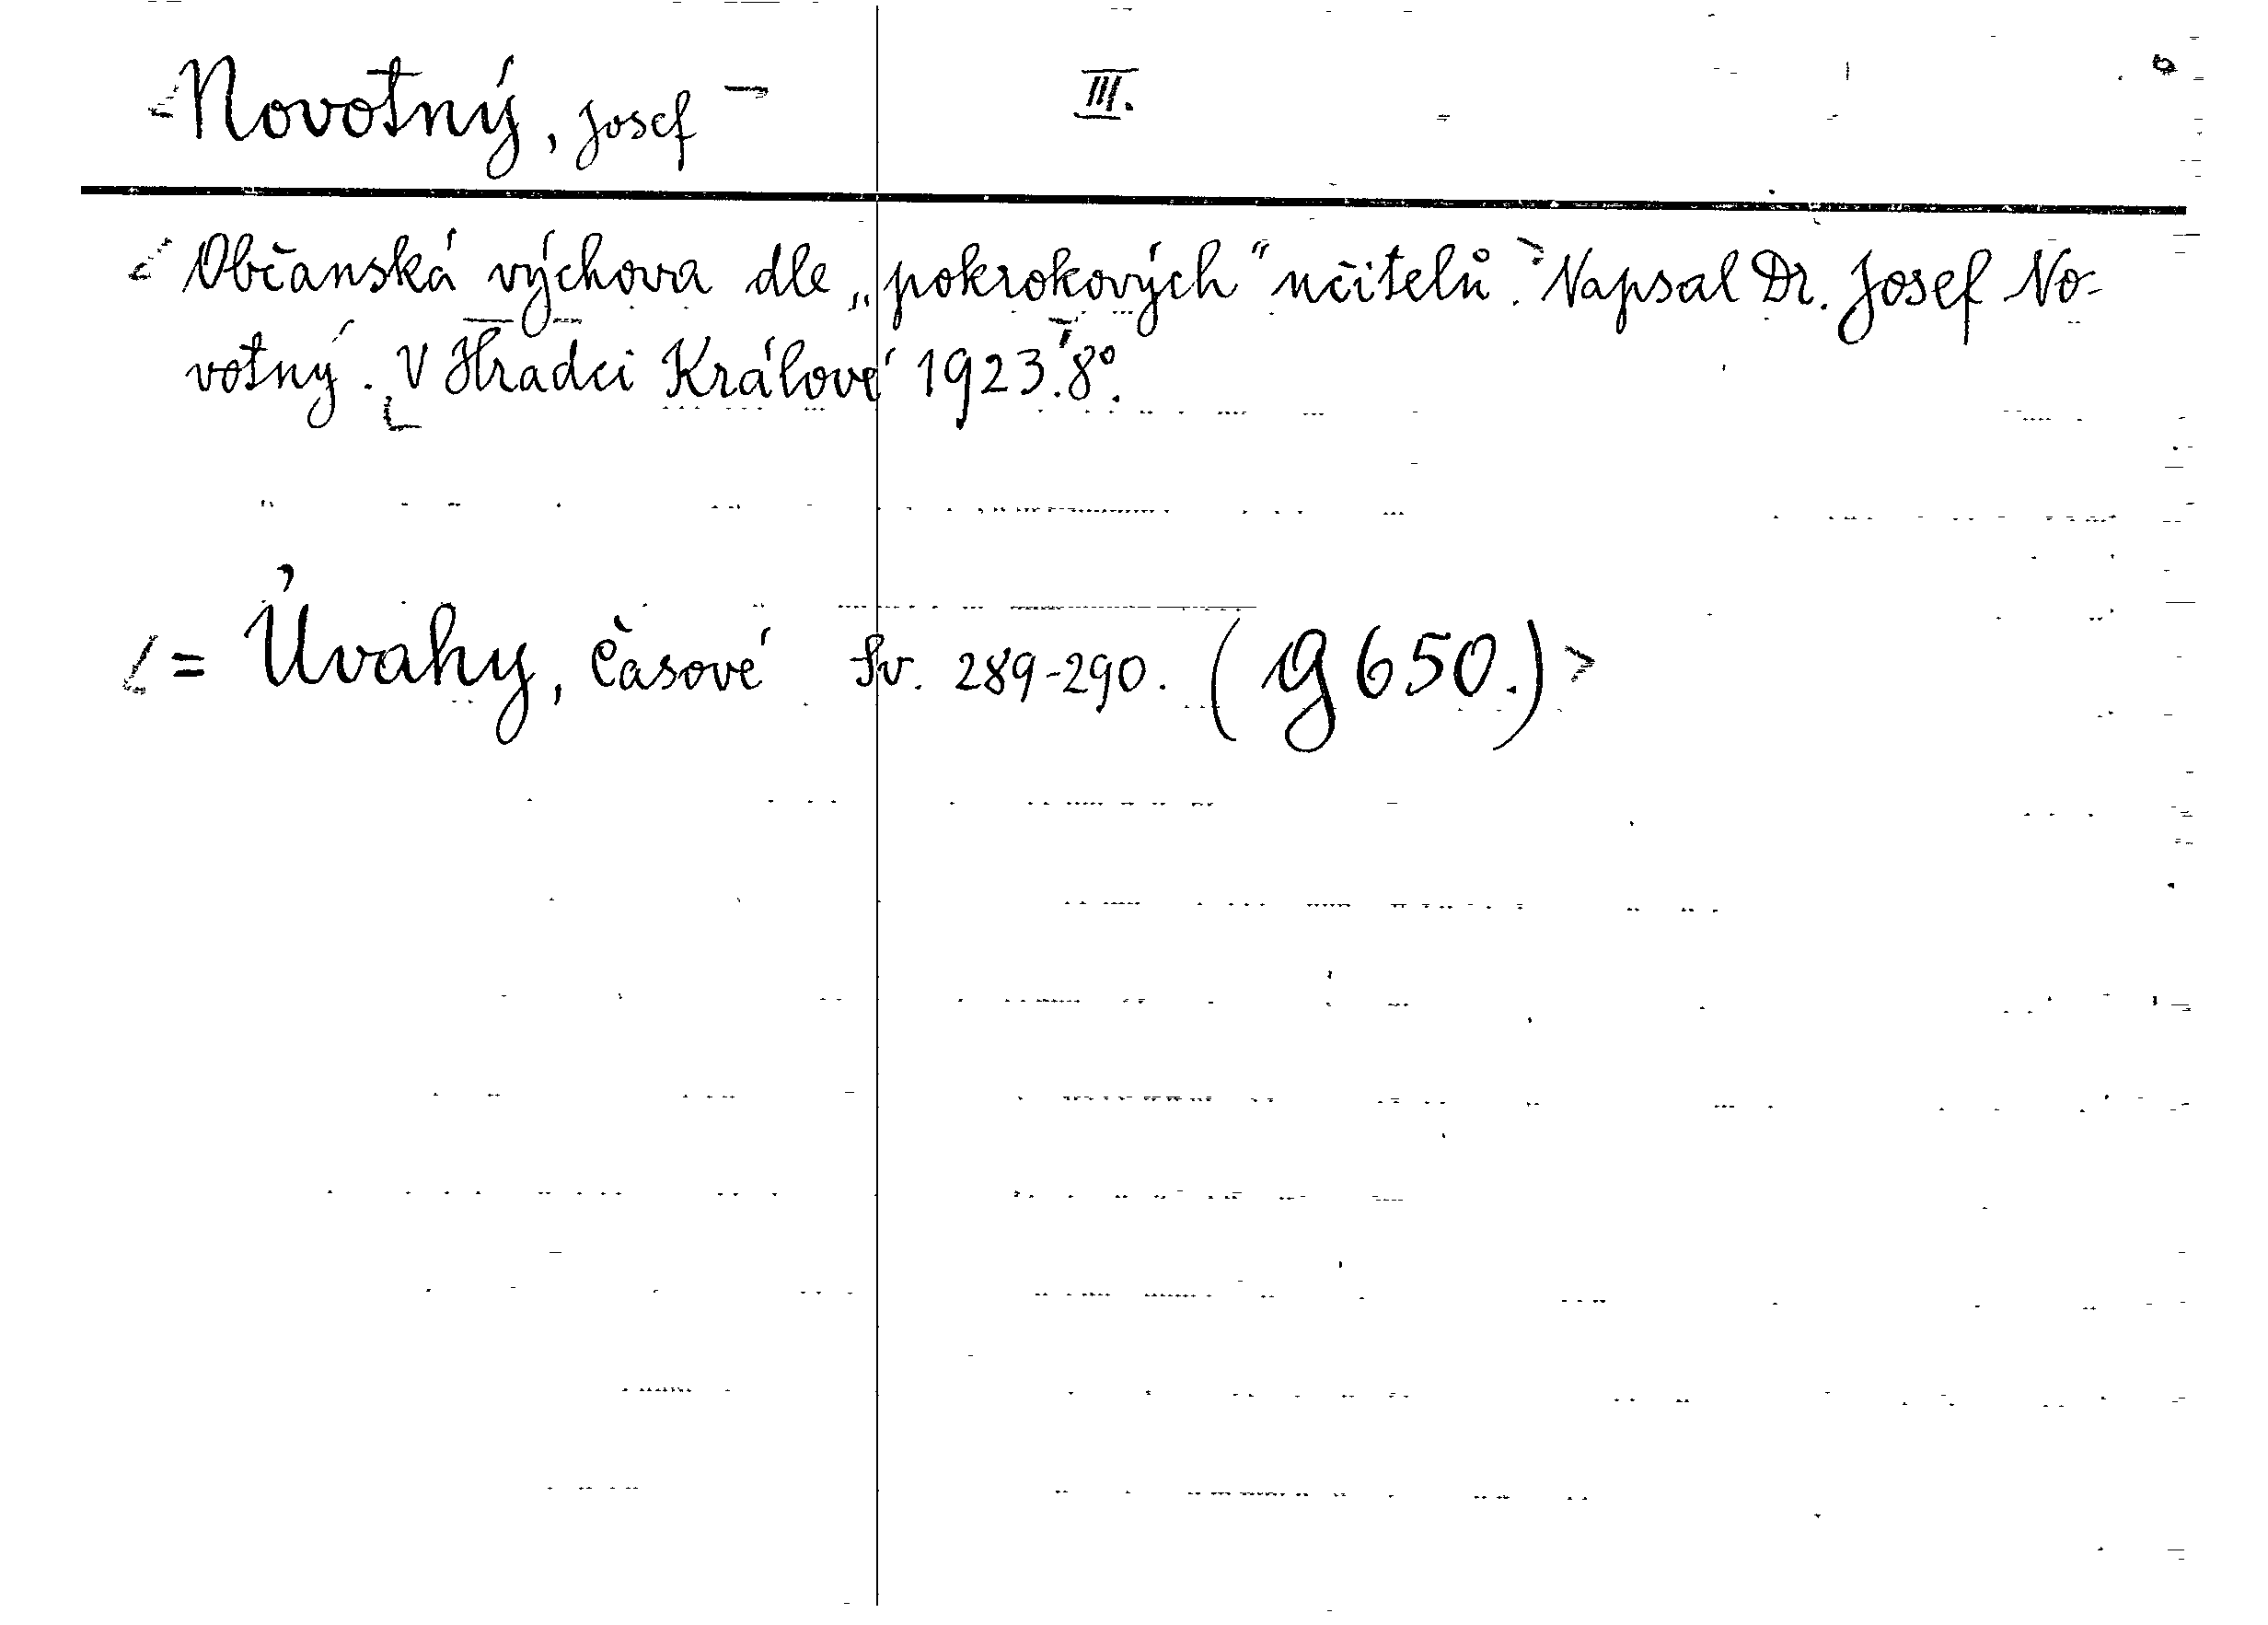 Novotný, Josef III.
Občanská výchova dle „pokrokových“ učitelů. Napsal Dr. Josef No-
votný. V Hradci Králové 1923. 8°.
= Úvahy, Časové Sv. 289-290. (g 650.)